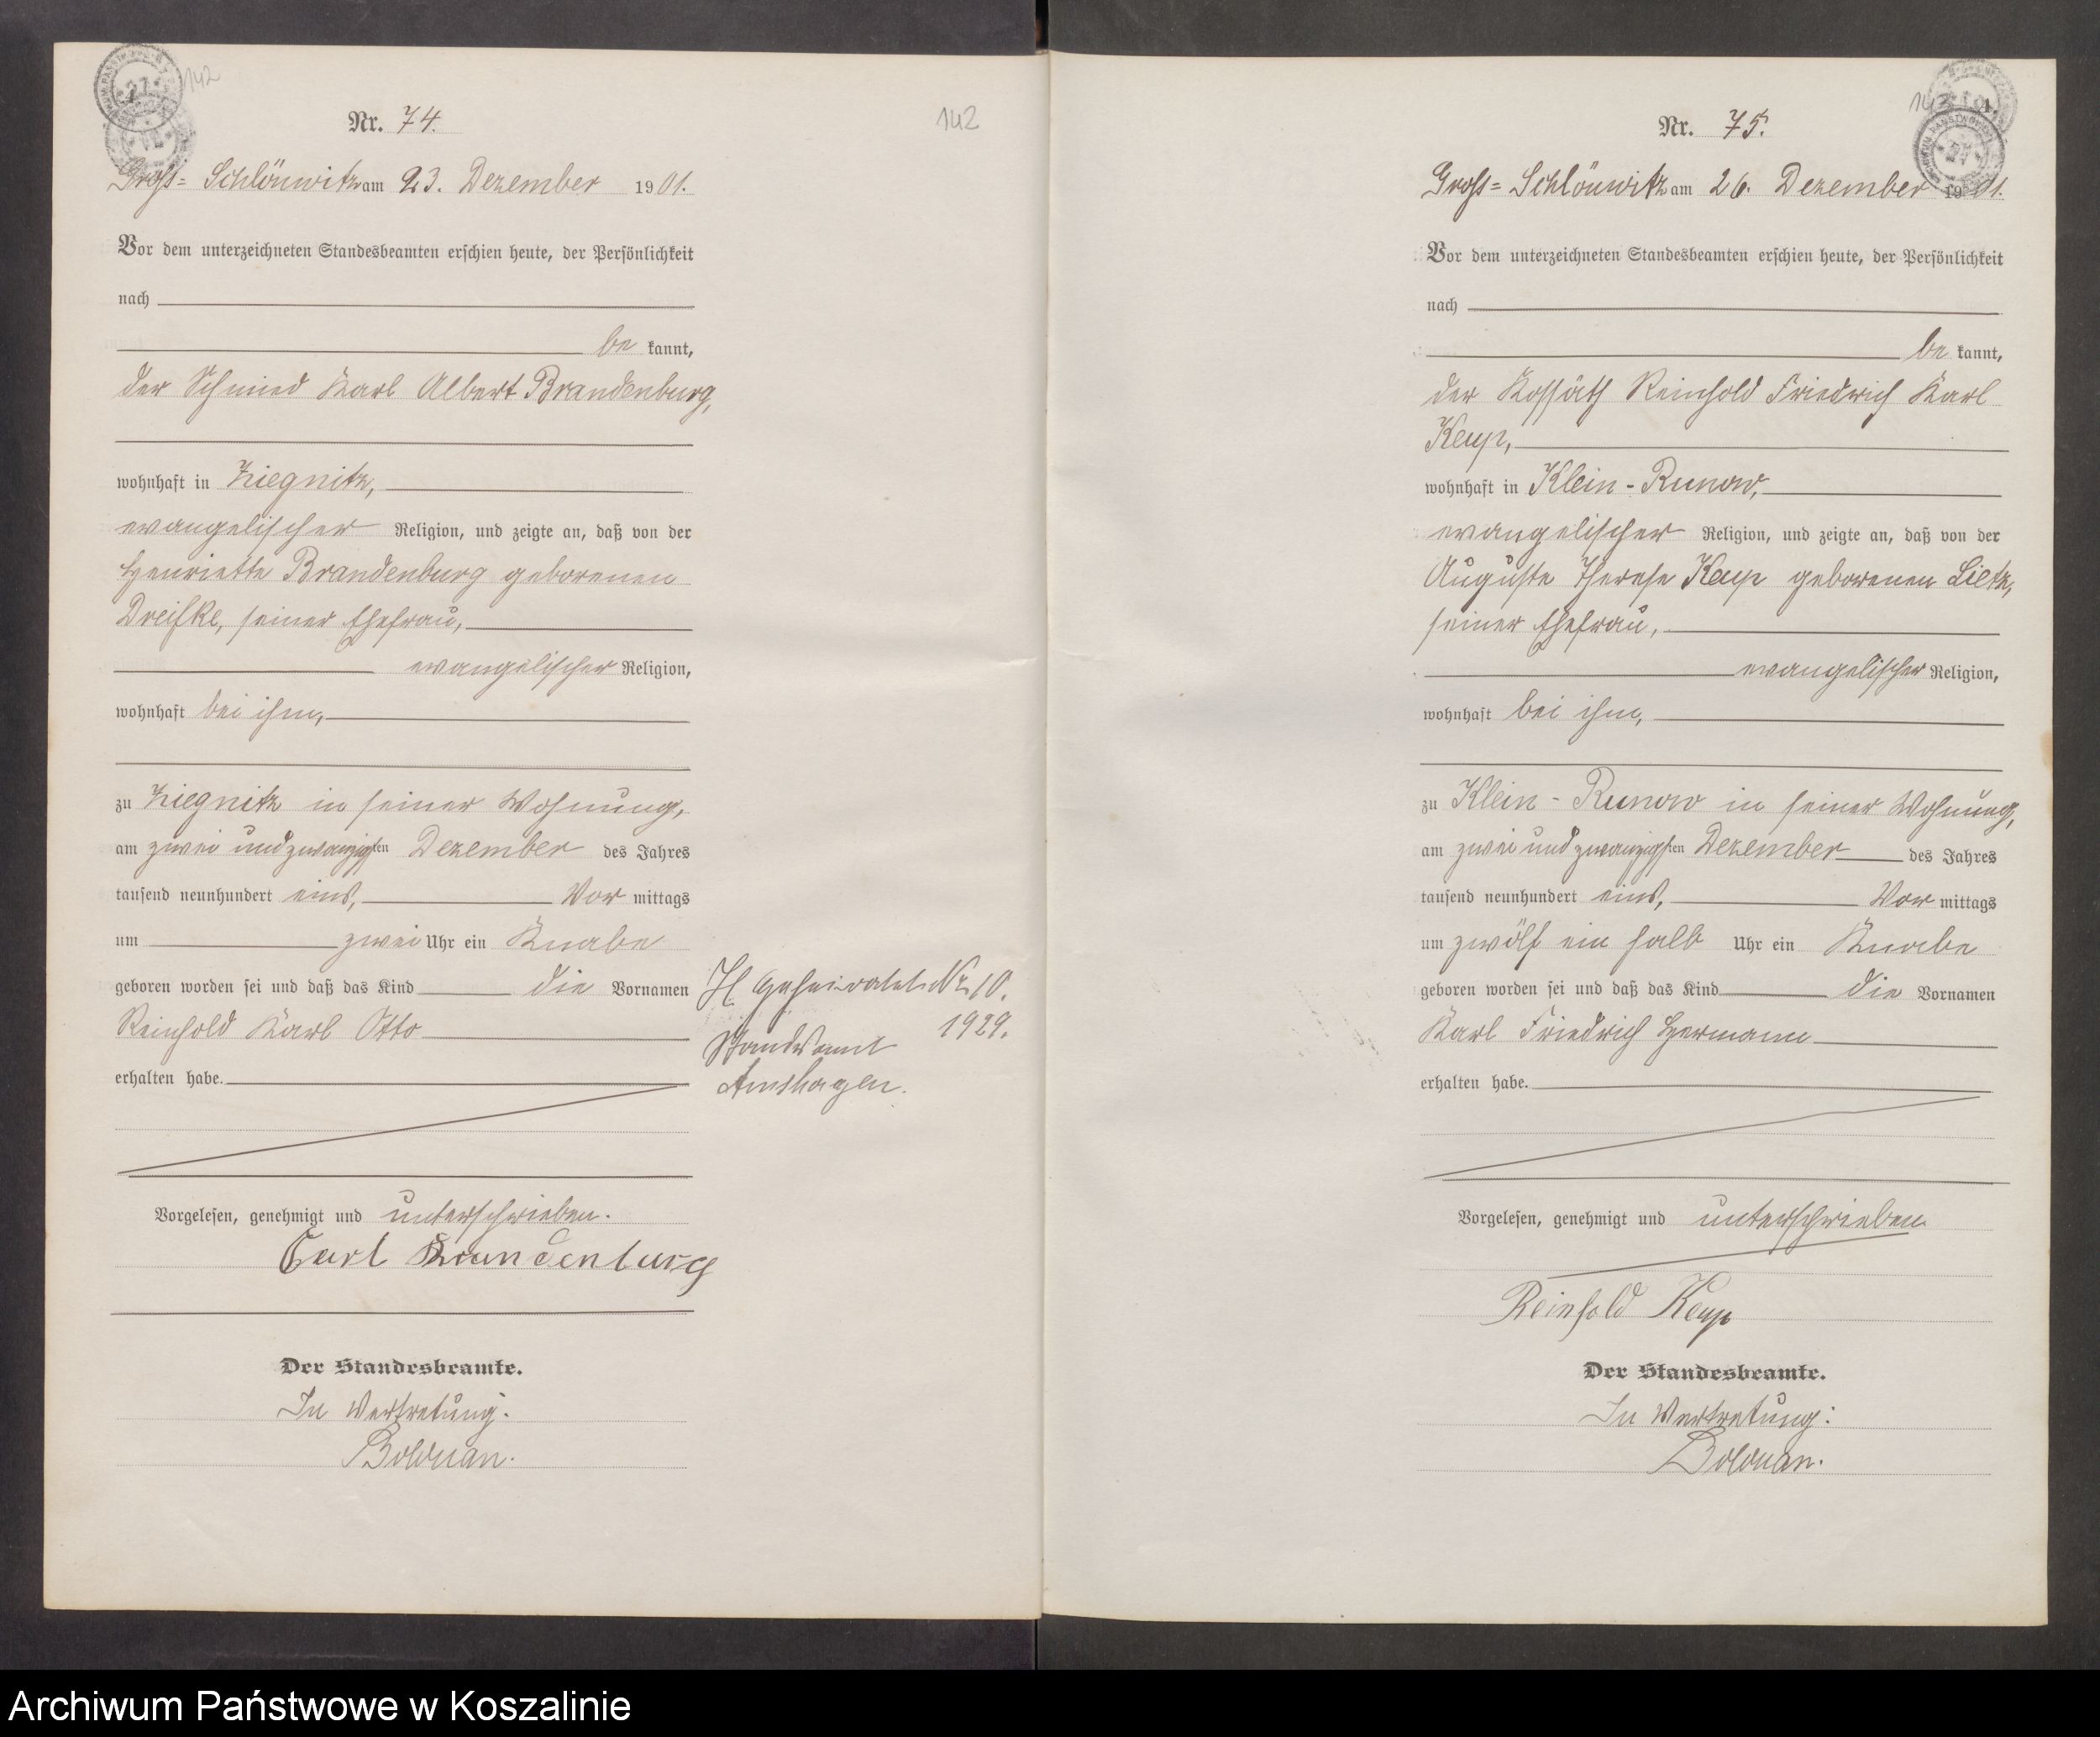 142
Nr. 74.
Groß= Schlönwitz am 23. Dezember 1901.
Vor dem unterzeichneten Standesbeamten erschien heute, der Persönlichkeit
nach
be kannt,
der Schmied Karl Albert Brandenburg,
wohnhaft in Ziegnitz,
evangelischer Religion, und zeigte an, daß von der
Henriette Brandenburg geborenen
Dreifke, seiner Ehefrau,
evangelischer Religion,
wohnhaft bei ihm,
zu Ziegnitz in seiner Wohnung,
am zwei und zwanzigsten Dezember des Jahres
tausend neunhundert eins, Vor mittags
um zwei Uhr ein Knabe
geboren worden sei und daß das Kind die Vornamen
Reinhold Karl Otto
erhalten habe.
Vorgelesen, genehmigt und unterschrieben.
Carl Brandenburg
Der Standesbeamte.
In Vertretung.
Bolduan.
142
Geheiratet Nr. 10.
1929.
Standesamt
Arnshagen.
Nr. 75.
Groß= Schlönwitz am 26. Dezember 1901.
Vor dem unterzeichneten Standesbeamten erschien heute, der Persönlichkeit
nach
be kannt,
der Kossäth Reinhold Friedrich Karl
Keup,
wohnhaft in Klein-Runow,
evangelischer Religion, und zeigte an, daß von der
Auguste Therese Keup geborenen Lietz,
seiner Ehefrau,
evangelischer Religion,
wohnhaft bei ihm,
zu Klein-Runow in seiner Wohnung,
am zwei und zwanzigsten Dezember des Jahres
tausend neunhundert eins, Vor mittags
um zwölf ein halb Uhr ein Knabe
geboren worden sei und daß das Kind die Vornamen
Karl Friedrich Hermann
erhalten habe.
Vorgelesen, genehmigt und unterschrieben
Reinhold Keup
Der Standesbeamte.
In Vertretung:
Bolduan.
Archiwum Państwowe w Koszalinie